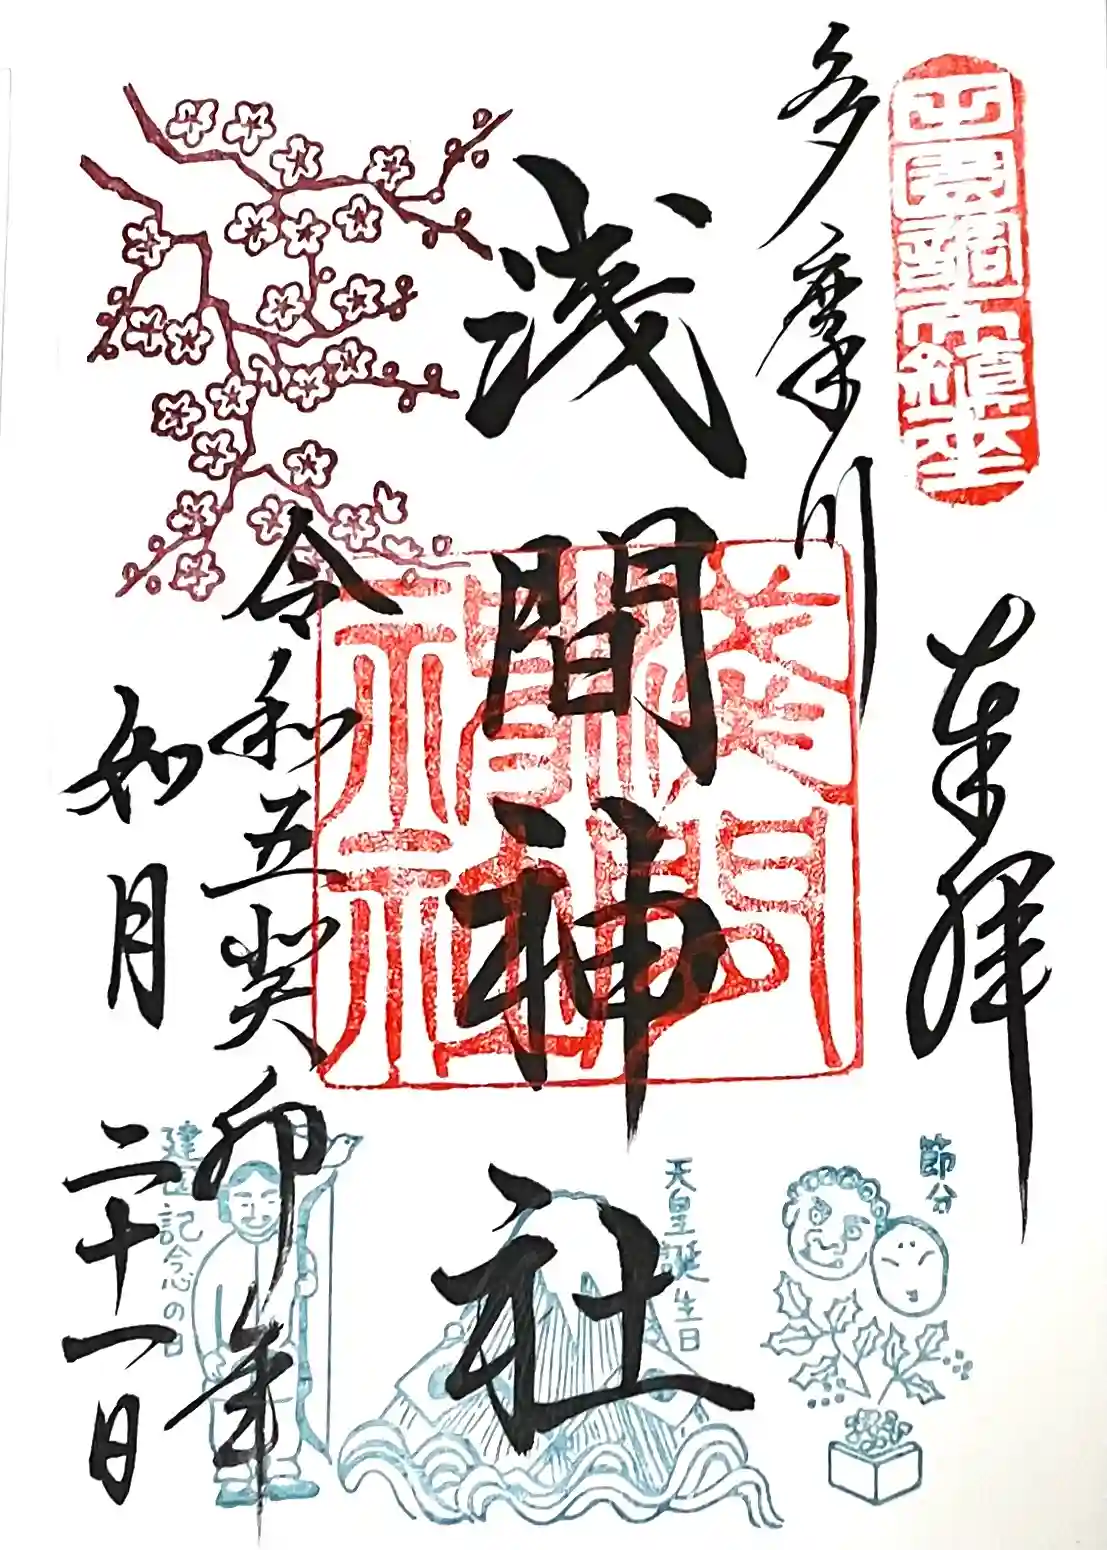 田園調布鎮座
奉拝
多摩川
浅間神社
淺間神社
令和五癸卯年
如月二十一日
節分
天皇誕生日
建国記念の日